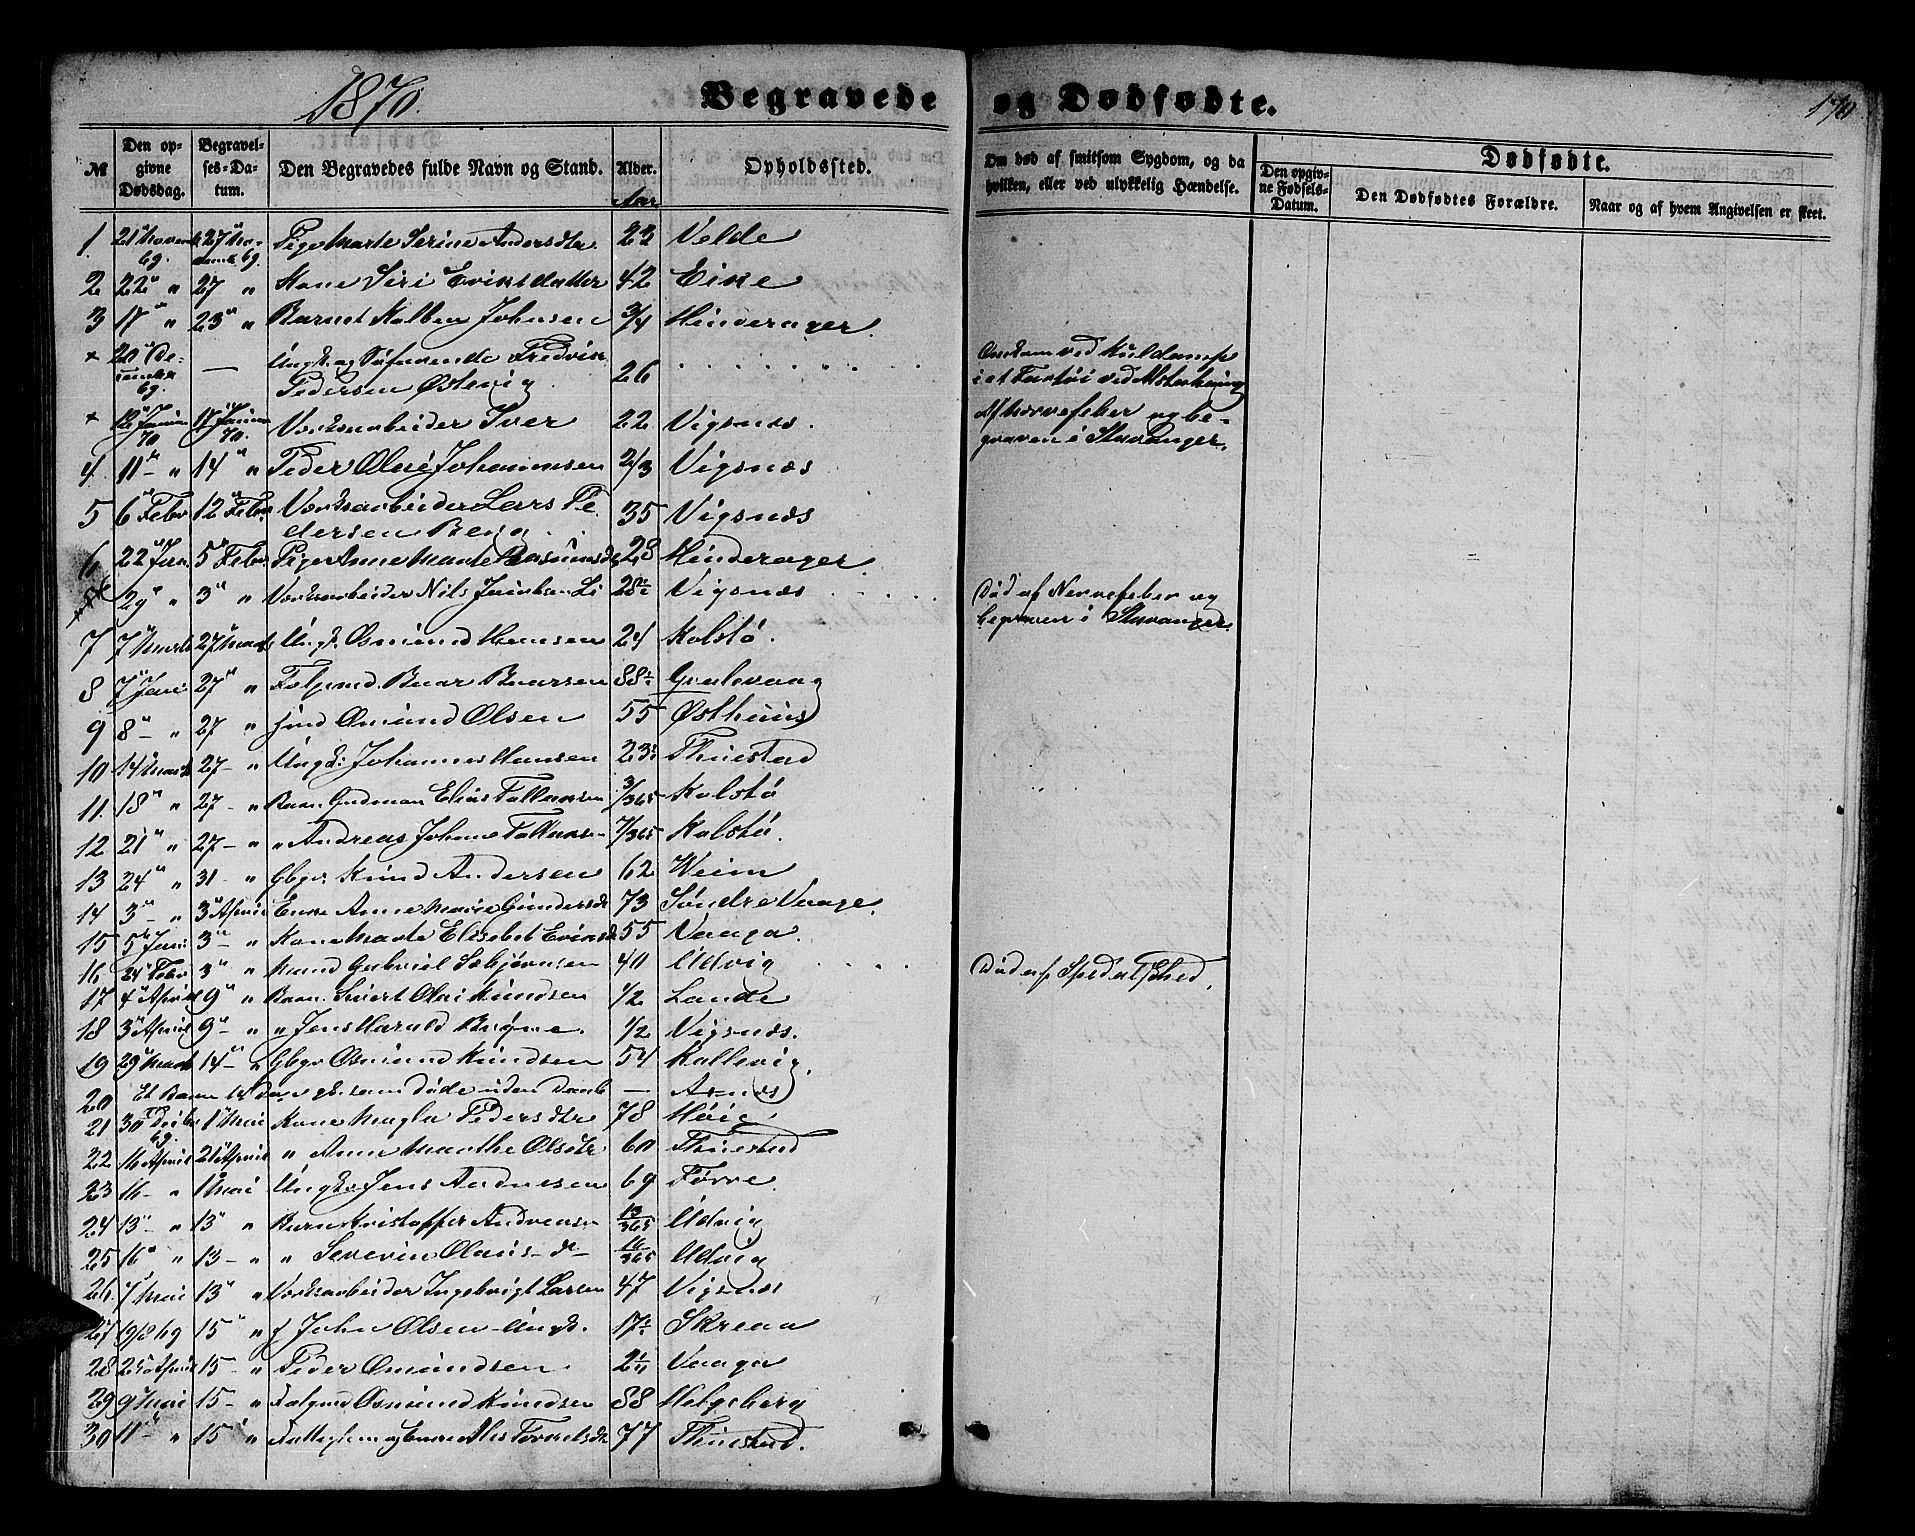 1870.
Begravede og Dødfødte.
170
№ Den opgivne Dødsdag. Begravelses-Datum. Den Begravedes fulde Navn og Stand. Alder. Opholdssted. Om død af smitsom Sygdom, og da hvilken, eller ved ulykkelig Hændelse. Dødfødte.
Den opgivne Fødsels-Datum. Den Dødfødtes Forældre. Naar og af hvem Angivelsen er skeet.
Aar
1. 21" Novem 69. 27" 69. Pige Marte Serine Andersdtr 22 Velde
2 22" " 27 " Kone Siri Eriksdatter 42 Eike
3 17" " 23" " Barnet Johnsen 3/4 Hinderager.
+ 20" December 69. — Ungk. og Søfarende Fredrik 26 . . . . Omkom ved Kuldamp
Pedersen Østevig i et Fartøi ved
+ 12" Januar 70 17 Januar 70. Værksarbeider Iver 22 Vigsnæs. Af Nervefeber og be-
graven i Stavanger.
4. 11"– " 14" " Peder Olai Johannesen 2/3 Vigsnæs
5 6" Febr 12" Febr. Værksarbeider Lars Pe- 35 Vigsnæs
dersen Berg.
6 22" Jan. 5" Febr. Pige Anne Marte Rasmusdt 28 Hinderager.
29 " 3" " Værksarbeider Nils Jacobsen Li 28 Vigsnæs Død af Nervefeber og
begraven i Stavanger.
7 7" Marts 27" Marts Ungk. Osmund Hansen 24 Kolstø.
8 7" Jan 27" " Folgemd. Baar Baarsen 88 Groslevaag
9 8"– " 27 " Osmund Olsen 55 Østhuus
10 14" Marts 27– " Ungk: Johannes Hansen 23 Thuestad
11. 18" " 27– " Barn Gudman Elias Tollaksen 3/365 Kolstø
12. 21" " 27– " " Andreas Johan Tollaksen 7/365 Kolstø.
13 24" " 31– " Gbgr. Knud Andersen 62 Weim
14 3"– " 3" April Enke Anne Marie Gundersdt 73 Søndre Vaage.
15 5" Jan 3"– " Kone Marte Elisebet Eriksdt 55 Vaaga.
16 24" Febr 3" " Mand Gabriel Sebjørnsen 40 Udvig . . . Død af Spedalskhed.
17 4" April 9" " Barn. Sivert Olai Knudsen 1/2 Lande
18 3" April 9"– " " Jens Harald Bryne. 1/2 Vigsnæs.
19 29" Marts 14"– " Gbgr Osmund Knudsen 54 Kallevig.
20 Et Barn 14 Dage gl. som døde uden Daab — Asnæs
21 30" Decbr 69. 1" Mai Kone Magla Pedersdtr 78 Høie,
22 16 April 21" April " Anne Marthe Olsdtr 60 Thuestad
23 16– " 1" Mai Ungk. Jens Andersen 69 Førre.
24 13"– " 13" " Barn Kristoffer Andreasen 13/365 Udvig
25 16" " 13– " " Severin Olaus – do – 16/365 Udvig
26 7" Mai 13" " Værksarbeider Ingebrigt Larsen 47 Vigsnæs
27 19/8 69 15" " John Olsen – Ungk. 17 Skreaa
28 25 April 15– " Peder Osmundsen. 2 Vaaga
29 9" Mai 15– " Folgemd Osmund Knudsen 88 Helgeberg
30 11"– " 15" " Fattiglem og Enke 77 Thuestad.